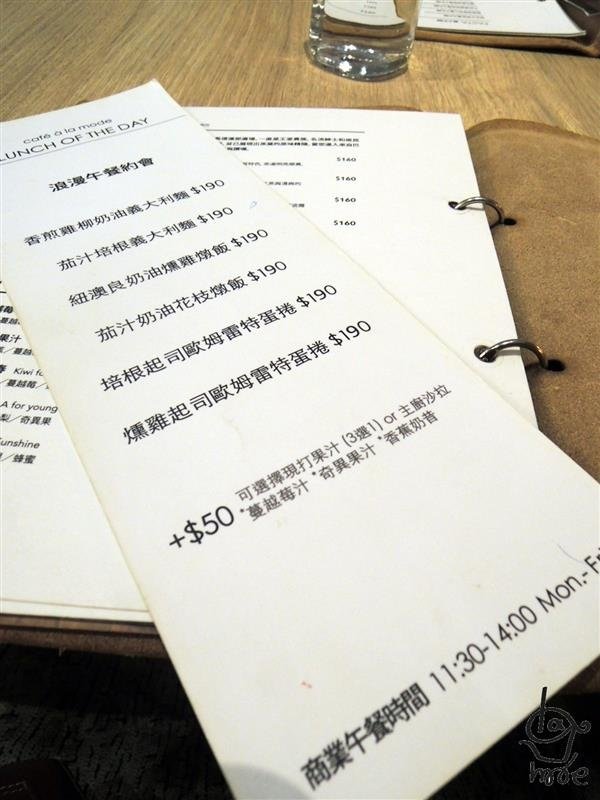 café à la mode
LUNCH OF THE DAY
浪漫午餐約會
香煎雞柳奶油義大利麵 $190
茄汁培根義大利麵 $190
紐澳良奶油燻雞燉飯 $190
茄汁奶油花枝燉飯 $190
培根起司歐姆雷特蛋捲 $190
燻雞起司歐姆雷特蛋捲 $190
+$50 可選擇現打果汁 (3選1) or 主廚沙拉
*蔓越莓汁 *奇異果汁 *香蕉奶昔
商業午餐時間 11:30-14:00 Mon.- Fr
$160
$160
$160
$160
果汁
Kiwi fo
/蔓越莓/
A for young
梨/奇異果
unshine
/蜂蜜
la mode